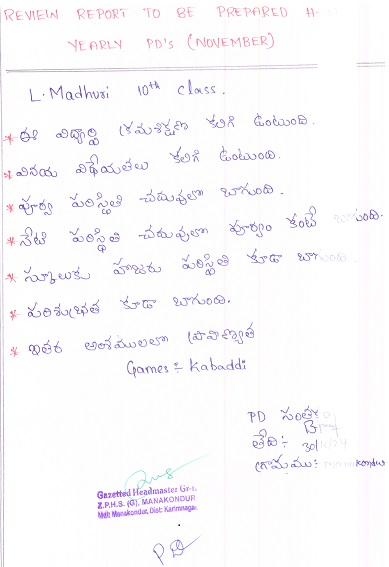 REVIEW REPORT TO BE PREPARED H-
YEARLY PD's (NOVEMBER)
L. Madhuri 10th Class.
* ఈ విద్యార్థి క్రమశిక్షణ కలిగి ఉంటుంది.
* వినయ విధేయతలు కలిగి ఉంటుంది.
* పూర్వ పరిస్థితి చదువులో బాగుంది.
* నేటి పరిస్థితి చదువులో పూర్వం కంటే బాగుంది.
* స్కూలుకు హాజరు పరిస్థితి కూడా బాగుంది.
* పరిశుభ్రత కూడా బాగుంది.
* ఇతర అంశములలో ప్రావిణ్యత
Games :- Kabaddi
PD సంతకం
తేది:- 30/
గ్రామము: Manakondur
Gazetted Headmaster Gr-I.
Z.P.H.S. (G). MANAKONDUR
Mdl: Manakondur, Dist: Karimnagar.
PD